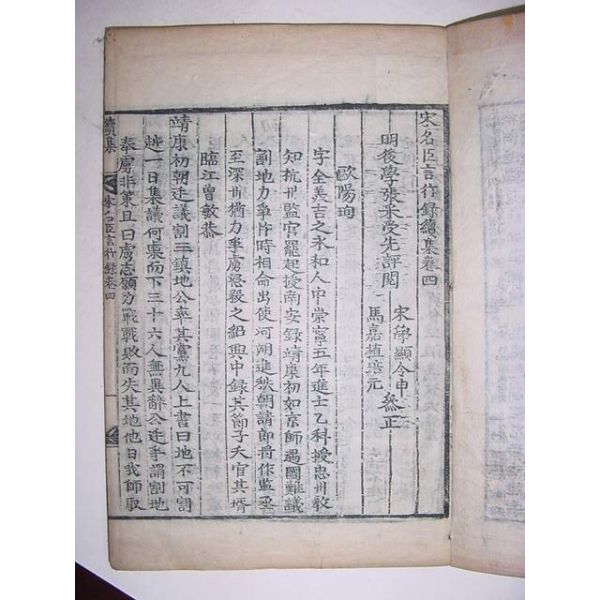 宋名臣言行録續集卷四
明後學張采受先評閱
宋學顯令申
馬嘉植培元
叅正
歐陽珣
字全美吉之永和人中崇寧五年進士乙科授忠州教
知杭州監官罷起授南安録靖康初如京師遇國難議
割地力爭作時相命出使河朔進秩朝請郎將作監丞
至深州猶力爭虜急殺之紹興中録其節子夫官其壻
臨江曾敏恭
靖康初朝廷議割三鎮地公率其黨九人上書曰地不可割
越一日集議何㮚而下三十六人無異辭公迕爭謂割地
奉虜非策且曰虜志願力戰戰敗而失其地他日我師取
續集
宋名臣言行録卷四